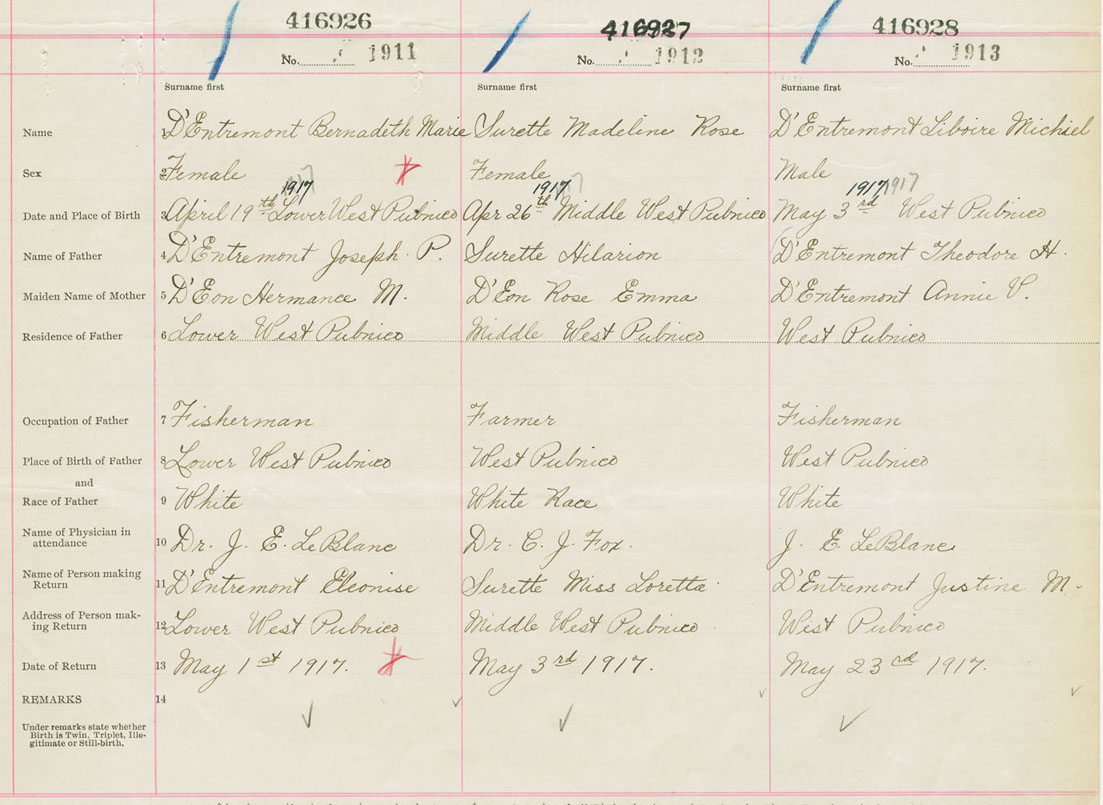 416926 416927 416928
No. 1911 No. 1912 No. 1913
Surname first Surname first Surname first
Name D'Entremont Bernadeth Marie Surette Madeline Rose D'Entremont Liboire Michiel
Sex 2 Female Female Male
1917 1917 1917 1917 1917
Date and Place of Birth 3 April 19th Lower West Pubnico Apr 26th Middle West Pubnico May 3rd West Pubnico
Name of Father 4 D'Entremont Joseph P. Surette Hilarion D'Entremont Theodore H.
Maiden Name of Mother 5 D'Eon Hermance M. D'Eon Rose Emma D'Entremont Annie V.
Residence of Father 6 Lower West Pubnico Middle West Pubnico West Pubnico
Occupation of Father 7 Fisherman Farmer Fisherman
Place of Birth of Father 8 Lower West Pubnico West Pubnico West Pubnico
and
Race of Father 9 White White Race White
Name of Physician in
attendance 10 Dr. J. E. LeBlanc Dr. C. J. Fox. J. E. LeBlanc
Name of Person making
Return 11 D'Entremont Eleonise Surette Miss Loretta D'Entremont Justine M.
Address of Person mak-
ing Return 12 Lower West Pubnico Middle West Pubnico West Pubnico
Date of Return 13 May 1st 1917. May 3rd 1917. May 23rd 1917.
REMARKS 14
Under remarks state whether
Birth is Twin, Triplet, Ille-
gitimate or Still-birth.